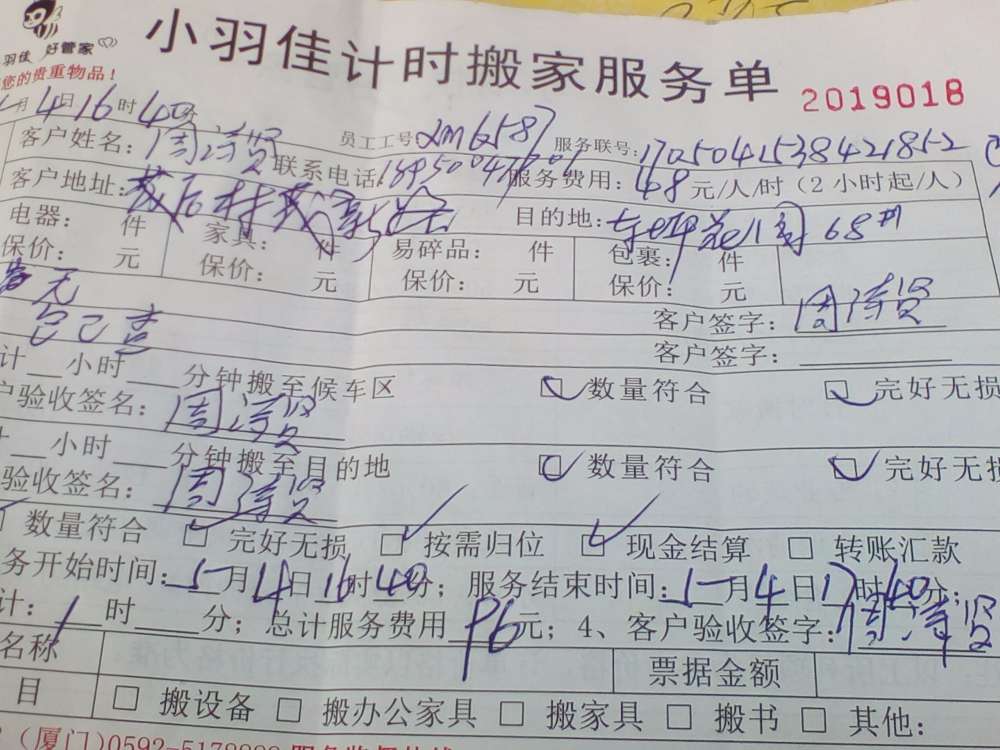 小羽佳计时搬家服务单
羽佳 好管家
您的贵重物品！
2019018
月4日16时40分
客户姓名：周 员工工号 服务联号：1705041538421852
联系电话 服务费用：48元/人/时（2小时起/人）
客户地址： 目的地： 68#
电器： 件 家具： 件 易碎品： 件 包裹： 件
保价： 元 保价： 元 保价： 元 保价： 元
无
客户签字：周
客户签字：
计 小时 分钟搬至候车区 数量符合 完好无损
户验收签名：周
小时 分钟搬至目的地 数量符合 完好无损
验收签名：周
数量符合 完好无损 按需归位 现金结算 转账汇款
务开始时间：5月4日16时40分；服务结束时间：5月4日17时40分；
计：1时 分；总计服务费用96元；4、客户验收签字：周
名称 票据金额
目 搬设备 搬办公家具 搬家具 搬书 其他：
（厦门)0592-